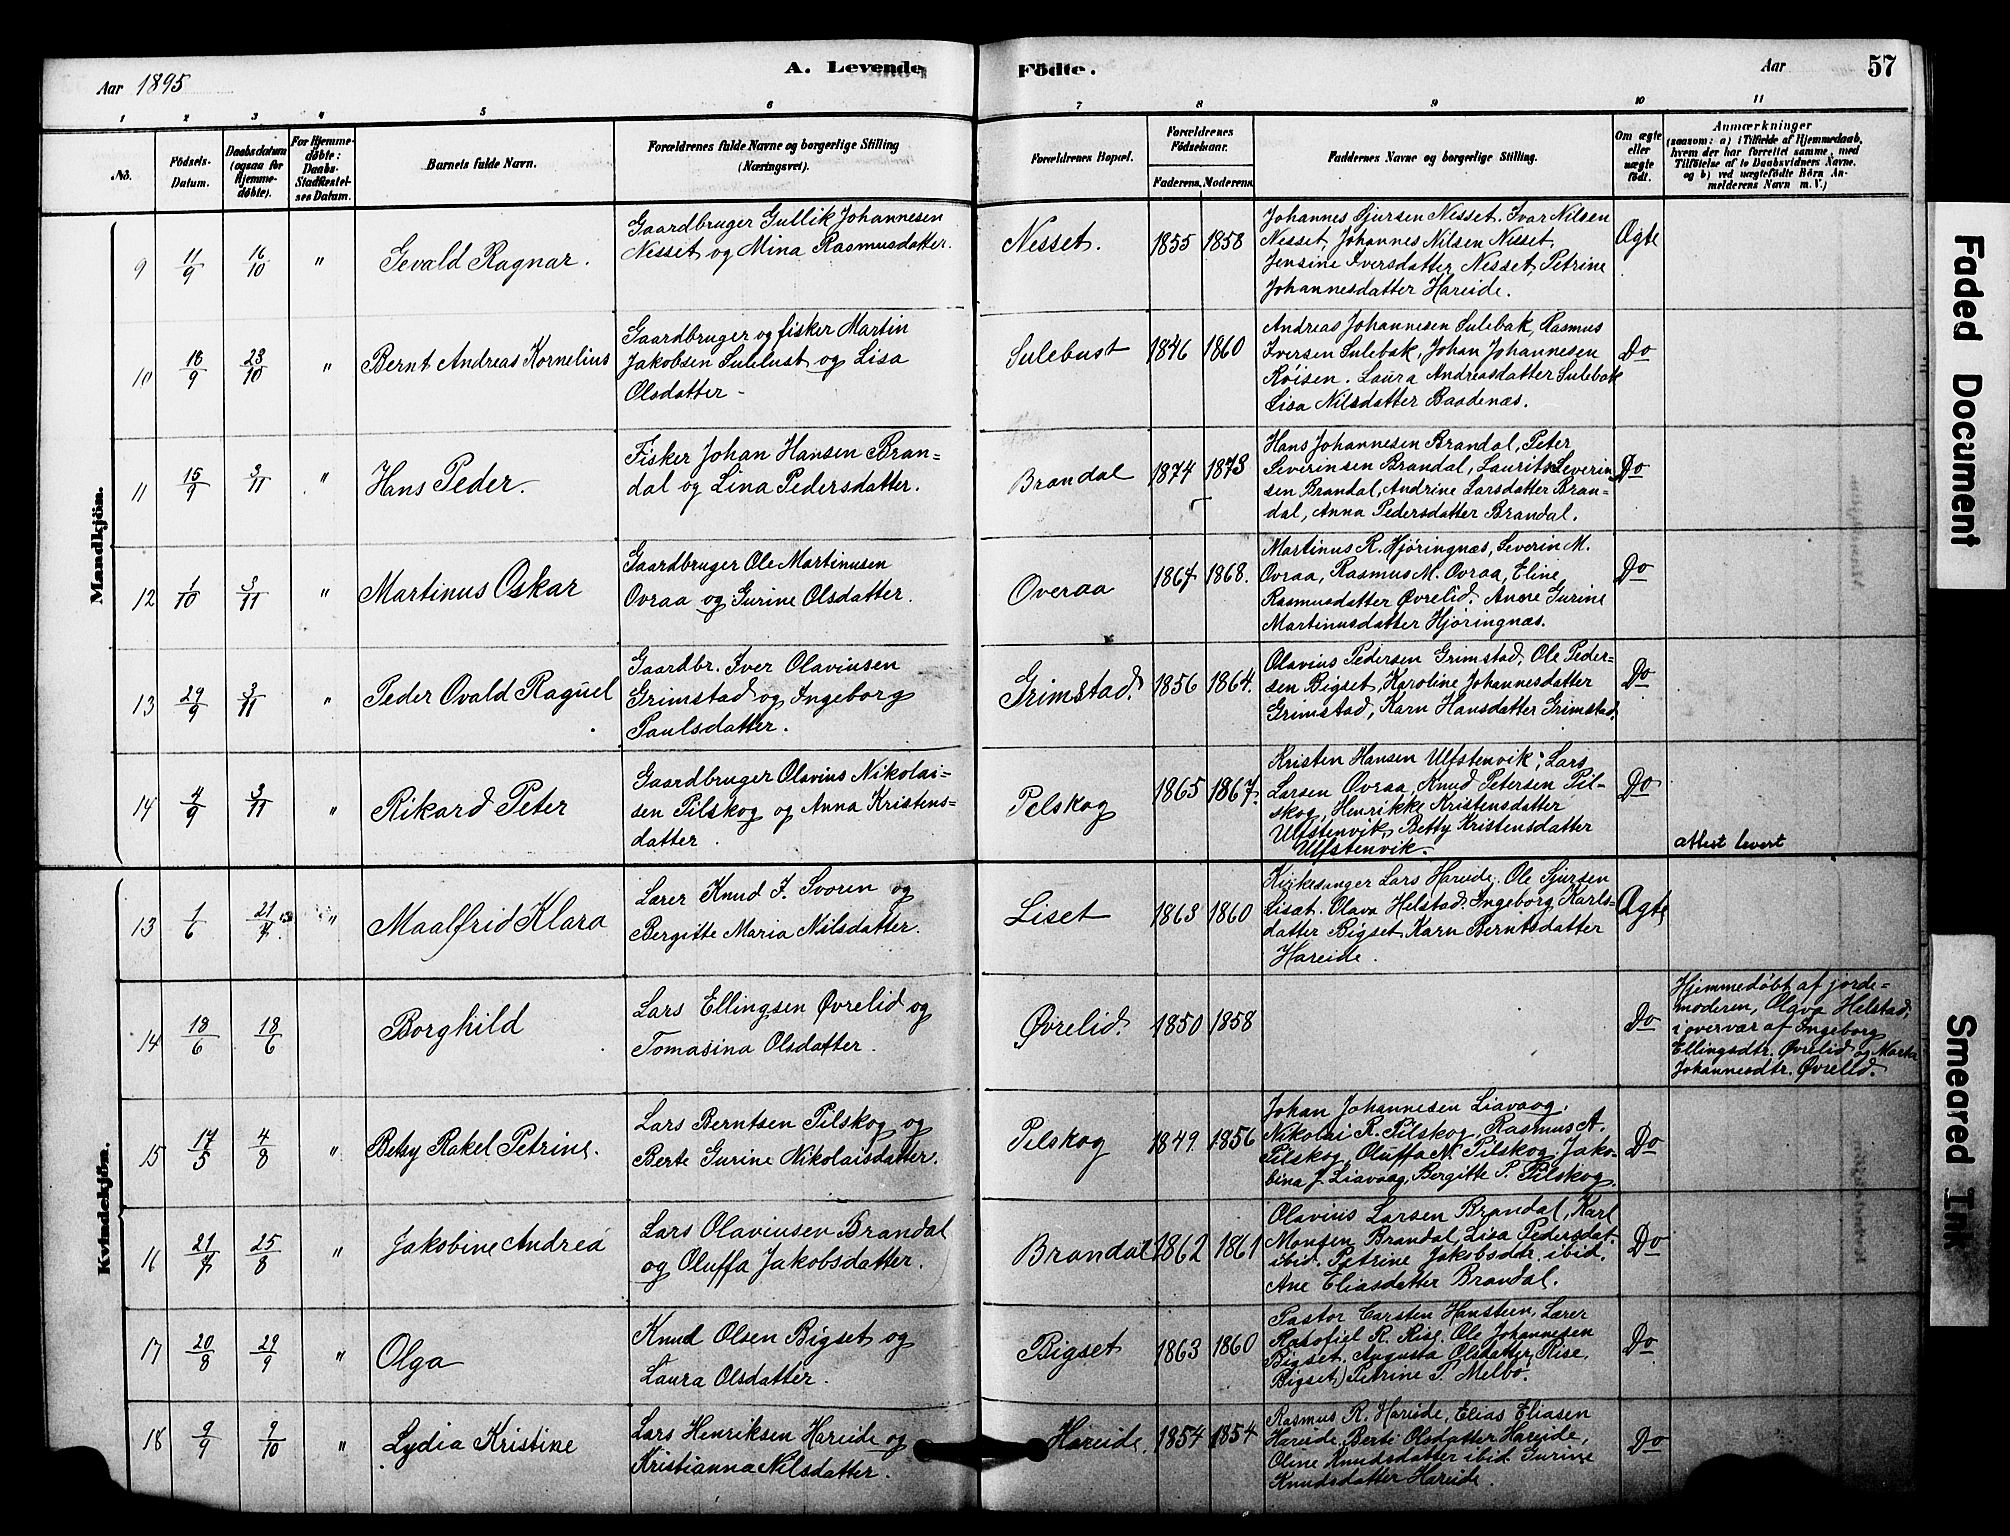 Aar 1895
A. Levende
Födte.
Aar
57
1 2 3 4 5 6 7 8 9 10 11
No.
Födsels-
Datum.
Daabsdatum
(ogsaa for
Hjemme-
døbte).
For Hjemme-
døbte:
Daabs-
Stadfæstel-
ses Datum.
Barnets fulde Navn.
Forældrenes fulde Navne og borgerlige Stilling
(Næringsvei).
Forældrenes Bopæl.
Forældrenes
Födselsaar.
Faderens. Moderens.
Faddernes Navne og borgerlige Stilling.
Om ægte
eller
uægte
født.
Anmærkninger
(saasom: a) i Tilfælde af Hjemmedaab,
hvem der har forrettet samme, med
Tilföielse af to Daabsvidners Navne,
og b) ved uægtefödte Börn An-
melderens Navn m. V.)
Mandkjön.
9 11/9 16/10 " Gevald Ragnar.
Gaardbruger Gullik Johannesen
Nesset og Mina Rasmusdatter.
Nesset. 1855 1858
Johannes Gjursen Nesset. Ivar Nilsen
Nesset, Johannes Nilsen Nesset,
Jensine Iversdatter Nesset, Petrine
Johannesdatter Hareide.
Ægte
10 16/9 23/10 " Bernt Andreas Kornelius
Gaardbruger og fisker Martin
Jakobsen Sulebust og Lisa
Olsdatter -
Sulebust 1846 1860
Andreas Johannesen Sulebak, Rasmus
Iversen Sulebak, Johan Johannesen
Røisen. Laura Andreasdatter Sulebak
Lisa Nilsdatter Baadenæs.
Do
11 15/9 3/11 " Hans Peder.
Fisker Johan Hansen Bran=
dal og Lina Pedersdatter.
Brandal 1874 1873
Hans Johannesen Brandal, Peter
Severinsen Brandal, Laurits Severin
sen Brandal, Andrine Larsdatter Bran=
dal, Anna Pedersdatter Brandal.
Do
12 1/10 3/11 " Martinus Oskar
Gaardbruger Ole Martinusen
Ovraa og Gurine Olsdatter.
Overaa 1867 1868.
Martinus R. Hjøringnæs, Severin M.
Ovraa, Rasmus M. Ovraa, Eline
Rasmusdatter Øvrelid. Anne Gurine
Martinusdatter Hjøringnæs.
Do
13 29/9 3/11 " Peder Ovald Raguel
Gaardbr. Iver Olaviusen
Grimstad og Ingeborg
Paulsdatter.
Grimstad 1856 1864.
Olavius Pedersen Grimstad, Ole Peder=
sen Bigset, Karoline Johannesdatter
Grimstad, Karn Hansdatter Grimstad.
Do
14 4/9 3/11 " Rikard Peter
Gaardbruger Olavius Nikolai=
sen Pilskog og Anna Kristens=
datter.
Pelskog 1865 1867.
Kristen Hansen Ulfstenvik, Lars
Larsen Ovraa, Knud Petersen Pil-
skog, Henrikke Kristensdatter
Ulfstenvik, Betty Kristensdatter
Ulfstenvik.
Do
attest levert
Kvindekjön.
13 1/6 21/7 " Maalfrid Klara
Lærer Knud J. Svoren og
Bergitte Maria Nilsdatter.
Liset 1863 1860
Kirkesanger Lars Hareide, Ole Sjursen
Liset. Olava Helstad. Ingeborg Karls-
datter Bigset Karn Berntsdatter
Hareide.
Ægte
14 18/6 18/6 Borghild
Lars Ellingsen Øvrelid og
Tomasina Olsdatter.
Øvrelid 1850 1858
Do
Hjemmedøbt af jorde=
moderen, Olava Helstad,
i overvær af Ingeborg
Ellingsdtr. Øvrelid og Marta
Johannesdtr. Øvrelid.
15 17/5 4/8 " Betsy Rakel Petrine.
Lars Berntsen Pilskog og
Berte Gurine Nikolaisdatter.
Pelskog 1849. 1856
Johan Johannesen Liavaag,
Nikolai R. Pilskog, Rasmus A.
Pilskog, Oluffa N. Pilskog, Jako-
bina J. Liavaag, Bergitte P. Pilskog.
Do
16 21/7 25/8 " Jakobine Andrea
Lars Olaviusen Brandal
og Oluffa Jakobsdatter.
Brandal 1862 1861
Olavius Larsen Brandal, Karl
Monsen Brandal, Lisa Pedersdat.
ibid. Petrine Jakobsdtr. ibid.
Ane Eliasdatter Brandal.
Do
17 20/8 29/9 " Olga
Knud Olsen Bigset og
Laura Olsdatter.
Bigset 1863 1860
Pastor Carsten Hansteen, Lærer
R. Rise. Ole Johannesen
Bigset, Augusta Olsdatter Rise,
Bigset) Petrine T. Melbö.
Do
18 9/9 9/10 " Lydia Kristine
Lars Henriksen Hareide og
Kristianna Nilsdatter.
Hareide. 1854 1854
Rasmus R. Hareide, Elias Eliasen
Hareide, Berte Olsdatter Hareide,
Oline Knudsdatter ibid. Gurine
Knudsdatter Hareide.
Do
Faded Document
Smeared Ink